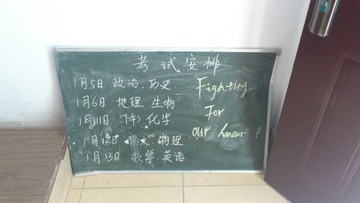 考试安排
1月5日 政治 历史
1月6日 地理 生物
1月11日 (下午) 化学
1月12日 语文 物理
1月13日 数学 英语
Fighting
For
our honour !